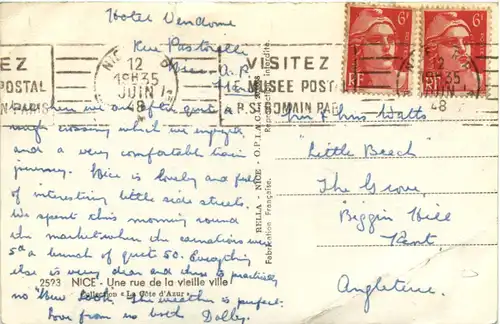 Hotel Vendome
Rue Pastorelli
Nice A.P.
EZ
POSTAL
N PARIS
NICE
12
19H35
JUIN
48
VISITEZ
MUSEE POSTAL
R. ST ROMAIN PARIS
12
35
JUIN
48
6F
RF
6F
RF
we had quite a
rough crossing which we enjoyed
and a very comfortable train
journey. Nice is lovely and full
of interesting little side streets.
We spent this morning round
the market where the carnations were
5d a bunch of quite 50. Everything
else is very dear and there is practically
no New Look. The weather is perfect.
Love from us both Dolly.
2593 NICE - Une rue de la vieille ville
Collection « La Côte d'Azur »
BELLA - NICE - O.P.I.A.C.
Fabrication Française.
Reproduction Interdite.
Mr & Mrs Watts
Little Beech
The Grove
Biggin Hill
Kent
Angleterre.